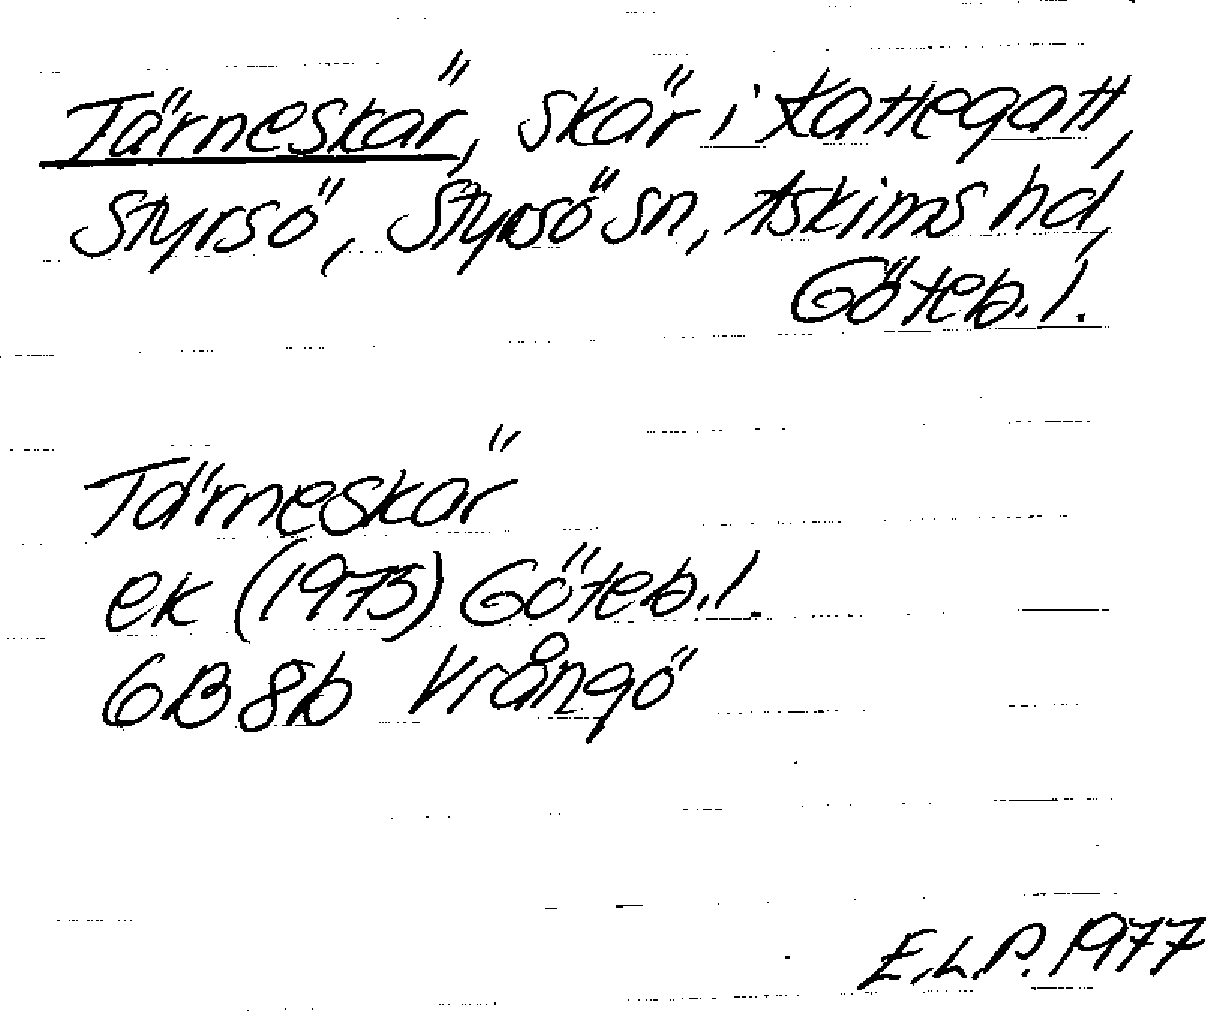 Tärneskär, skär i Kattegatt,
Styrsö, Styrsö sn, Askims hd,
Göteb. l.
Tärneskär
ek (1973) Göteb. l.
6B 8b Vrångö
E.L.P. 1977